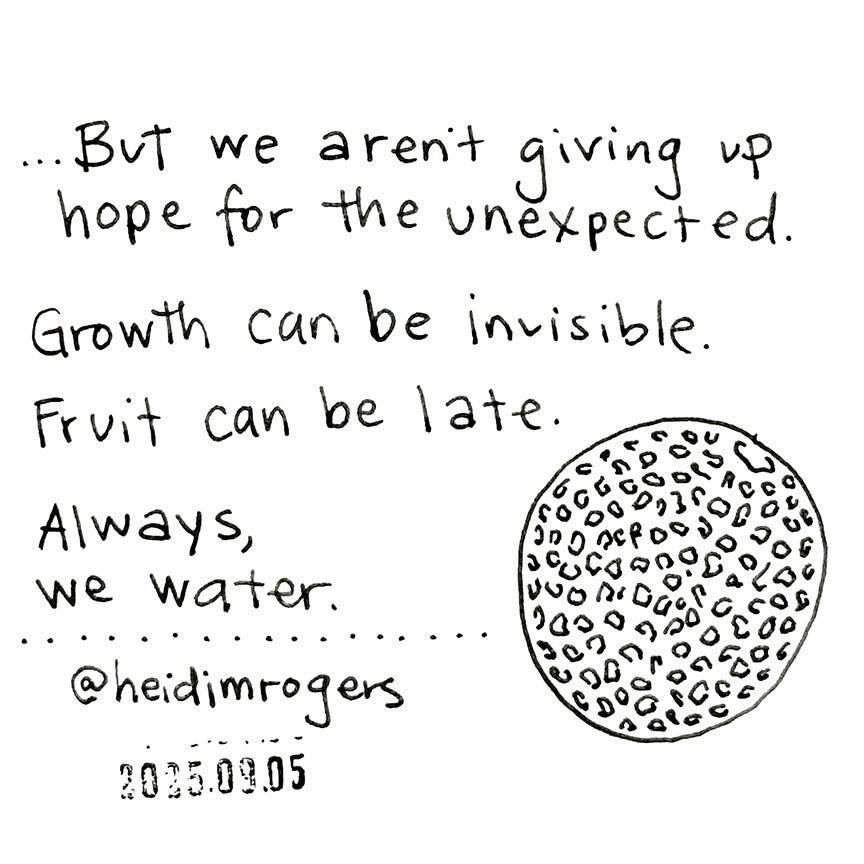 ...But we aren't giving up
hope for the unexpected.
Growth can be invisible.
Fruit can be late.
Always,
we water.
@heidimrogers
2025.09.05